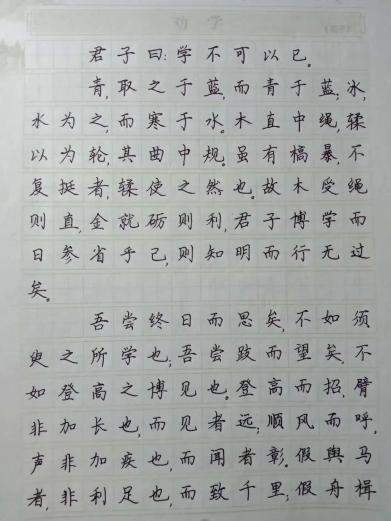 劝学
(荀子)
君子曰:学不可以已。
青,取之于蓝,而青于蓝;冰,
水为之,而寒于水。木直中绳,𫐓
以为轮,其曲中规。虽有槁暴,不
复挺者,𫐓使之然也。故木受绳
则直,金就砺则利,君子博学而
日参省乎己,则知明而行无过
矣。
吾尝终日而思矣,不如须
臾之所学也;吾尝跂而望矣,不
如登高之博见也。登高而招,臂
非加长也,而见者远;顺风而呼,
声非加疾也,而闻者彰。假舆马
者,非利足也,而致千里;假舟楫